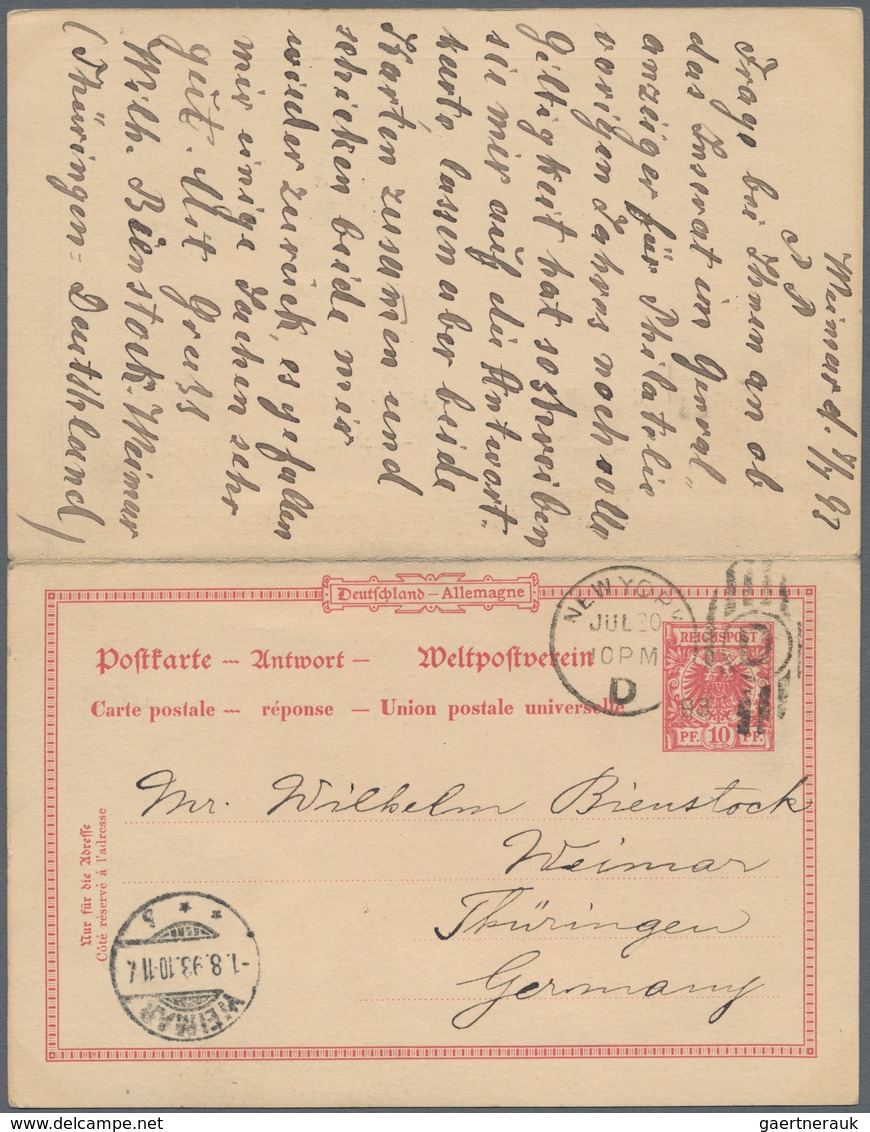 Weimar d. 8/7 93
P P
Frage bei Ihnen an ob
das Inserat im Genral„
anzeiger für Philatelie
vorigen Jahres noch volle
Giltigkeit hat so schreiben
sie mir auf die Antwort„
karte lassen aber beide
Karten zusamen und
schicken beide mir
wieder zurück, es gefallen
mir einige Sachen sehr
gut. Mit Gruß
Wilh. Bienstock-Weimar
(Thüringen= Deutschland)
Deutschland — Allemagne
Postkarte — Antwort — Weltpostverein
Carte postale — réponse — Union postale universelle
NEW YORK
JUL 20
10 PM
D
93
REICHSPOST
PF. 10 PF.
Nur für die Adresse
Côté réservé à l'adresse
Mr. Wilhelm Bienstock
Weimar
Thüringen
Germany
WEIMAR
-1.8.93.10-11
gaertnerauk